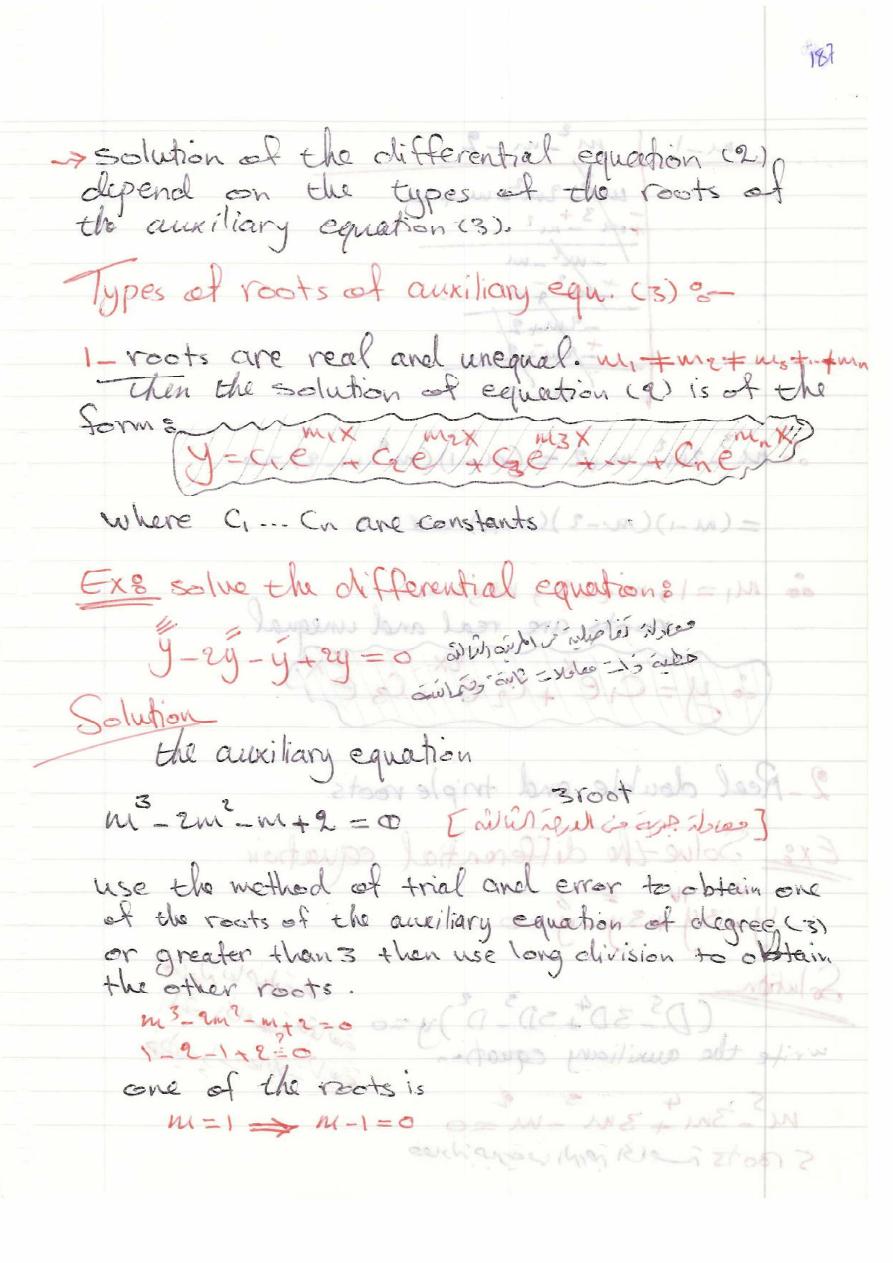 187
→ solution of the differential equation (2)
depend on the types of the roots of
the auxiliary equation (3).
Types of roots of auxiliary equ. (3) :-
1- roots are real and unequal. m₁ ≠ m₂ ≠ m₃ ≠ ... ≠ mₙ
Then the solution of equation (2) is of the
form:
y = c₁e^{m₁x} + c₂e^{m₂x} + c₃e^{m₃x} + ... + cₙe^{mₙx}
where C₁ ... Cₙ are constants
Ex: solve the differential equation:
y''' - 2y'' - y' + 2y = 0 معادلة تفاضلية من المرتبة الثالثة
خطية ذات معاملات ثابتة ومتجانسة
Solution
the auxiliary equation
3 root
m³ - 2m² - m + 2 = 0 [معادلة جبرية من الدرجة الثالثة]
use the method of trial and error to obtain one
of the roots of the auxiliary equation of degree (3)
or greater than 3 then use long division to obtain
the other roots.
m³ - 2m² - m + 2 = 0
1 - 2 - 1 + 2 ?= 0
one of the roots is
m = 1 ⟹ m - 1 = 0